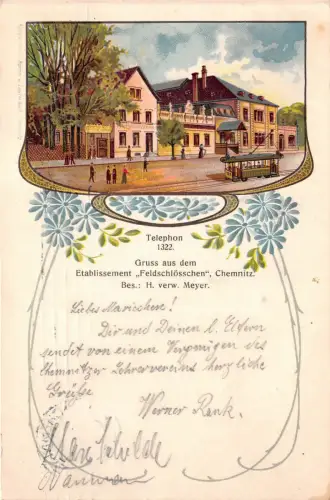 Telephon
1322.
Gruss aus dem
Etablissement „Feldschlösschen", Chemnitz.
Bes.: H. verw. Meyer.
Liebes Mariechen!
Dir und Deinen l. Eltern
sendet von einem Vergnügen des
Chemnitzer Lehrervereins herzliche
Grüße
Werner Renk.